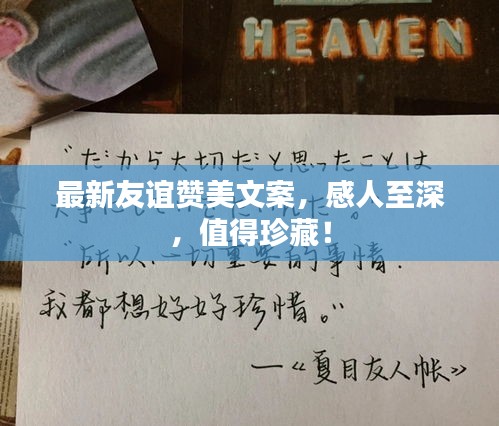 HEAVEN
“だから大切だと思ったことは
最新友谊赞美文案，感人至深
，值得珍藏！
“所以，一切重要的事情，
我都想好好珍惜。”
—《夏目友人帐》